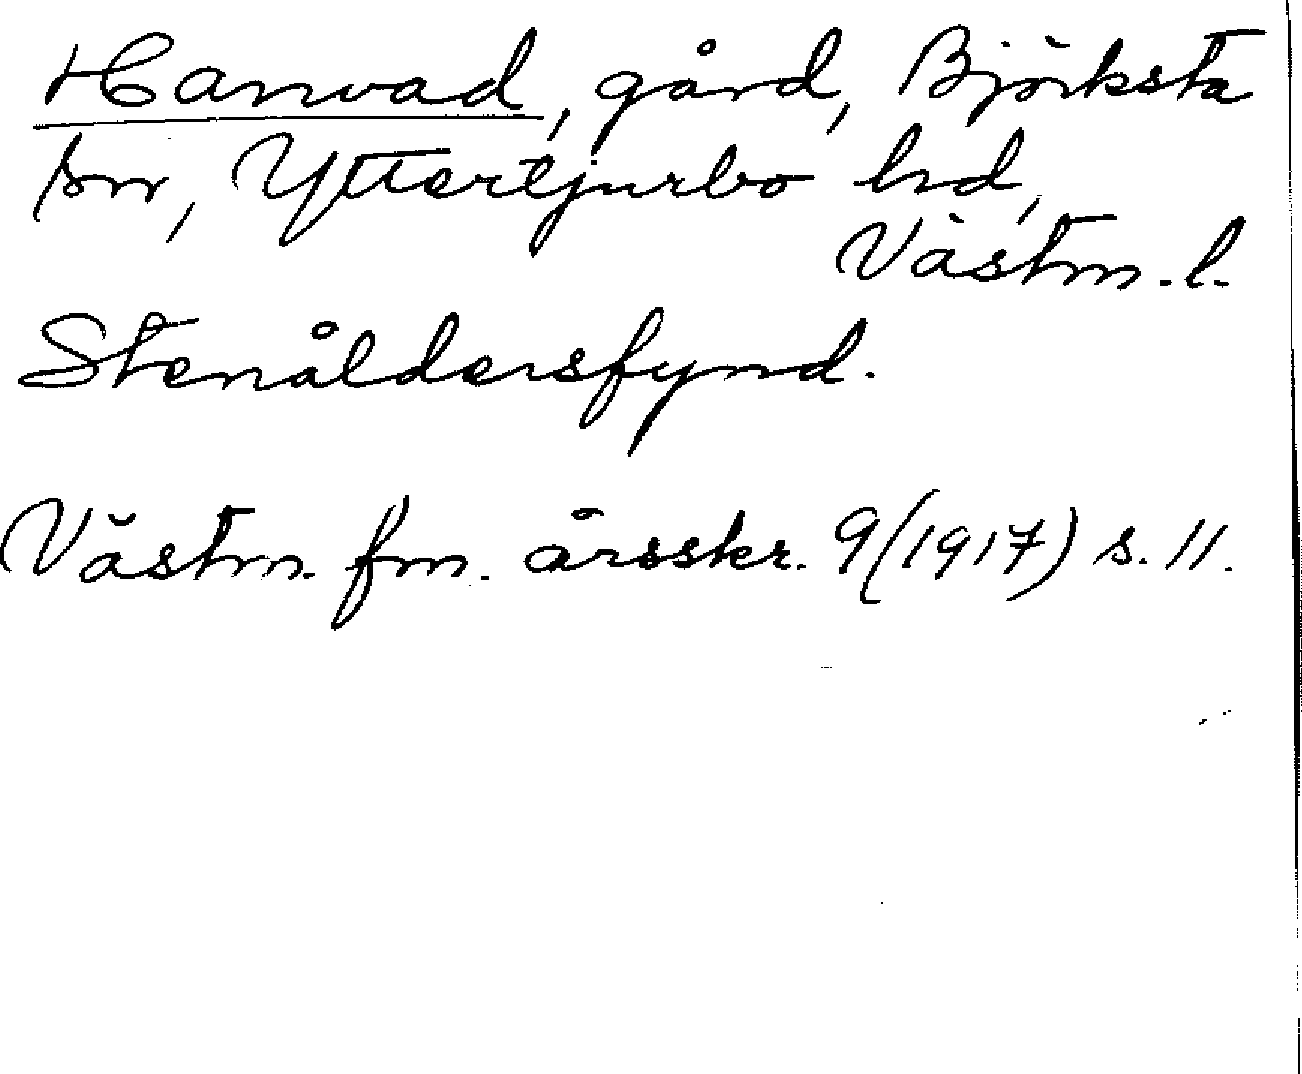 Hanvad, gård, Björksta
sn, Yttertjurbo hd,
Västm. l.
Stenåldersfynd.
Västm. fm. årsskr. 9 (1917) s. 11.